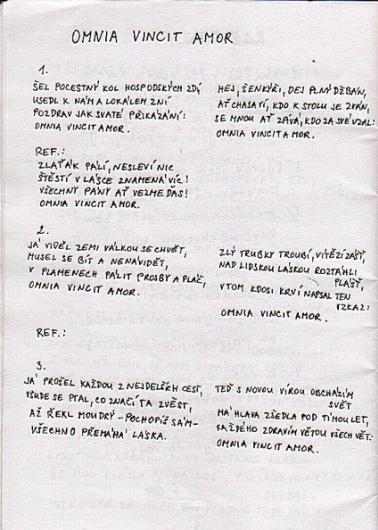 OMNIA VINCIT AMOR
1.
ŠEL POCESTNÝ KOL HOSPODSKÝCH ZDÍ
USEDL K NÁM A LOKÁLEM ZNÍ
POZDRAV JAK SVATÉ PŘIKÁZÁNÍ:
OMNIA VINCIT AMOR.
HEJ, ŠENKÝŘI, DEJ PLNÝ DŽBÁN,
AŤ CHASA TÍ, KDO K STOLU JE ZVÁN,
SE MNOU AŤ ZPÍVÁ, KDO ZA SVÉ VZAL:
OMNIA VINCIT AMOR.
REF.:
ZLAŤÁK PÁLÍ, NESLEVÍ NIC
ŠTĚSTÍ V LÁSCE ZNAMENÁ VÍC!
VŠECHNY PÁNY AŤ VEZME ĎAS!
OMNIA VINCIT AMOR.
2.
JÁ VIDĚL ZEMI VÁLKOU SE CHVĚT,
MUSEL SE BÍT A NENÁVIDĚT,
V PLAMENECH PÁLIT PROSBY A PLÁČ,
OMNIA VINCIT AMOR.
ZLÝ TRUBKY TROUBÍ, VÍTĚZÍ ZÁŠŤ,
NAD LIDSKOU LÁSKOU ROZTÁHLI
PLÁŠŤ,
V TOM KDOSI KRVÍ NAPSAL TEN
VZKAZ:
OMNIA VINCIT AMOR.
REF.:
3.
JÁ PROŠEL KAŽDOU Z NEJDELŠÍCH CEST,
VŠUDE SE PTAL, CO ZNAČÍ TA ZVĚST,
AŽ ŘEKL MOUDRÝ - POCHOPÍŠ SÁM -
VŠECHNO PŘEMÁHÁ LÁSKA.
TEĎ S NOVOU VÍROU OBCHÁZÍM
SVĚT
MÁ HLAVA ZŠEDLA POD TÍHOU LET,
KAŽDÉHO ZDRAVÍM VĚTOU VŠECH VĚT:
OMNIA VINCIT AMOR.